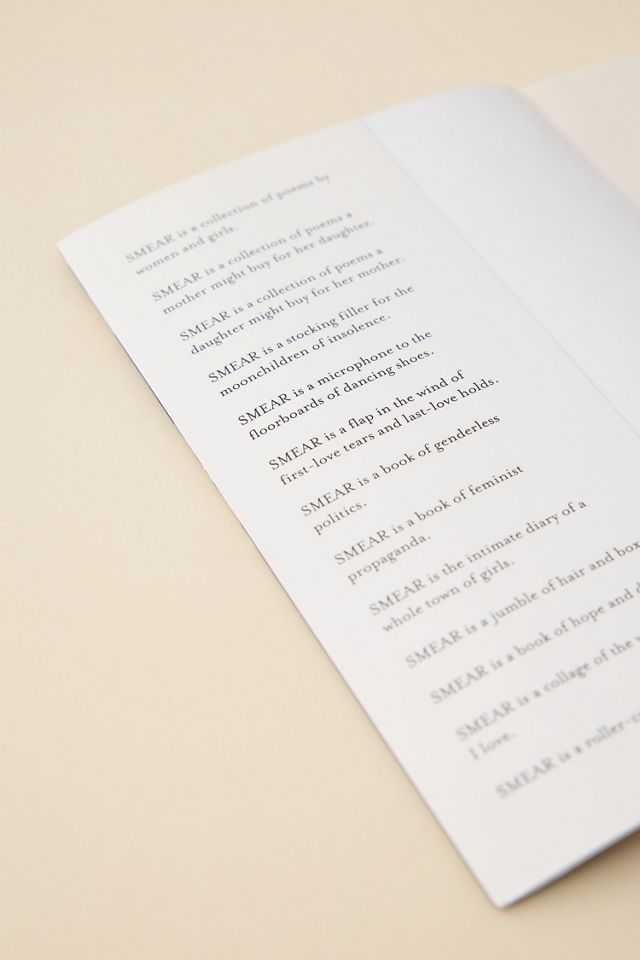 SMEAR is a collection of poems by
women and girls.
SMEAR is a collection of poems a
mother might buy for her daughter.
SMEAR is a collection of poems a
daughter might buy for her mother.
SMEAR is a stocking filler for the
moonchildren of insolence.
SMEAR is a microphone to the
floorboards of dancing shoes.
SMEAR is a flap in the wind of
first-love tears and last-love holds.
SMEAR is a book of genderless
politics.
SMEAR is a book of feminist
propaganda.
SMEAR is the intimate diary of a
whole town of girls.
SMEAR is a jumble of hair and box
SMEAR is a book of hope and
SMEAR is a collage of the
I love.
SMEAR is a